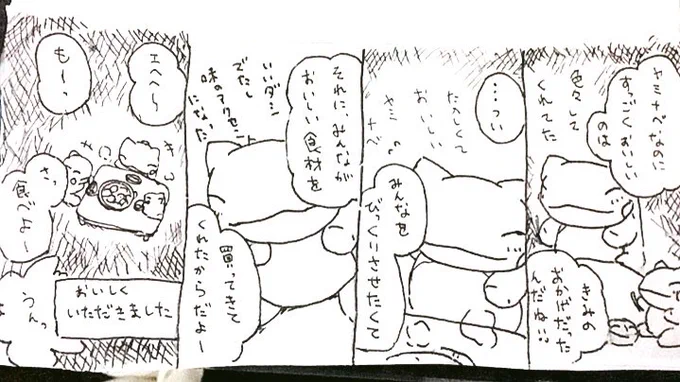 ヤミナベなのに
すっごくおいしい
のは
色々して
くれてた
きみの
おかげだった
んだね!!
…つい
たのしくて
おいしい
ヤミ
ナベ
みんなを
びっくりさせたくて
それに、みんなが
おいしい食材を
いいダシ
でたし
味のアクセント
になった
買ってきて
くれたからだよー
エヘヘ
もーっ
さっ
食べよー
うんっ
おいしく
いただきました